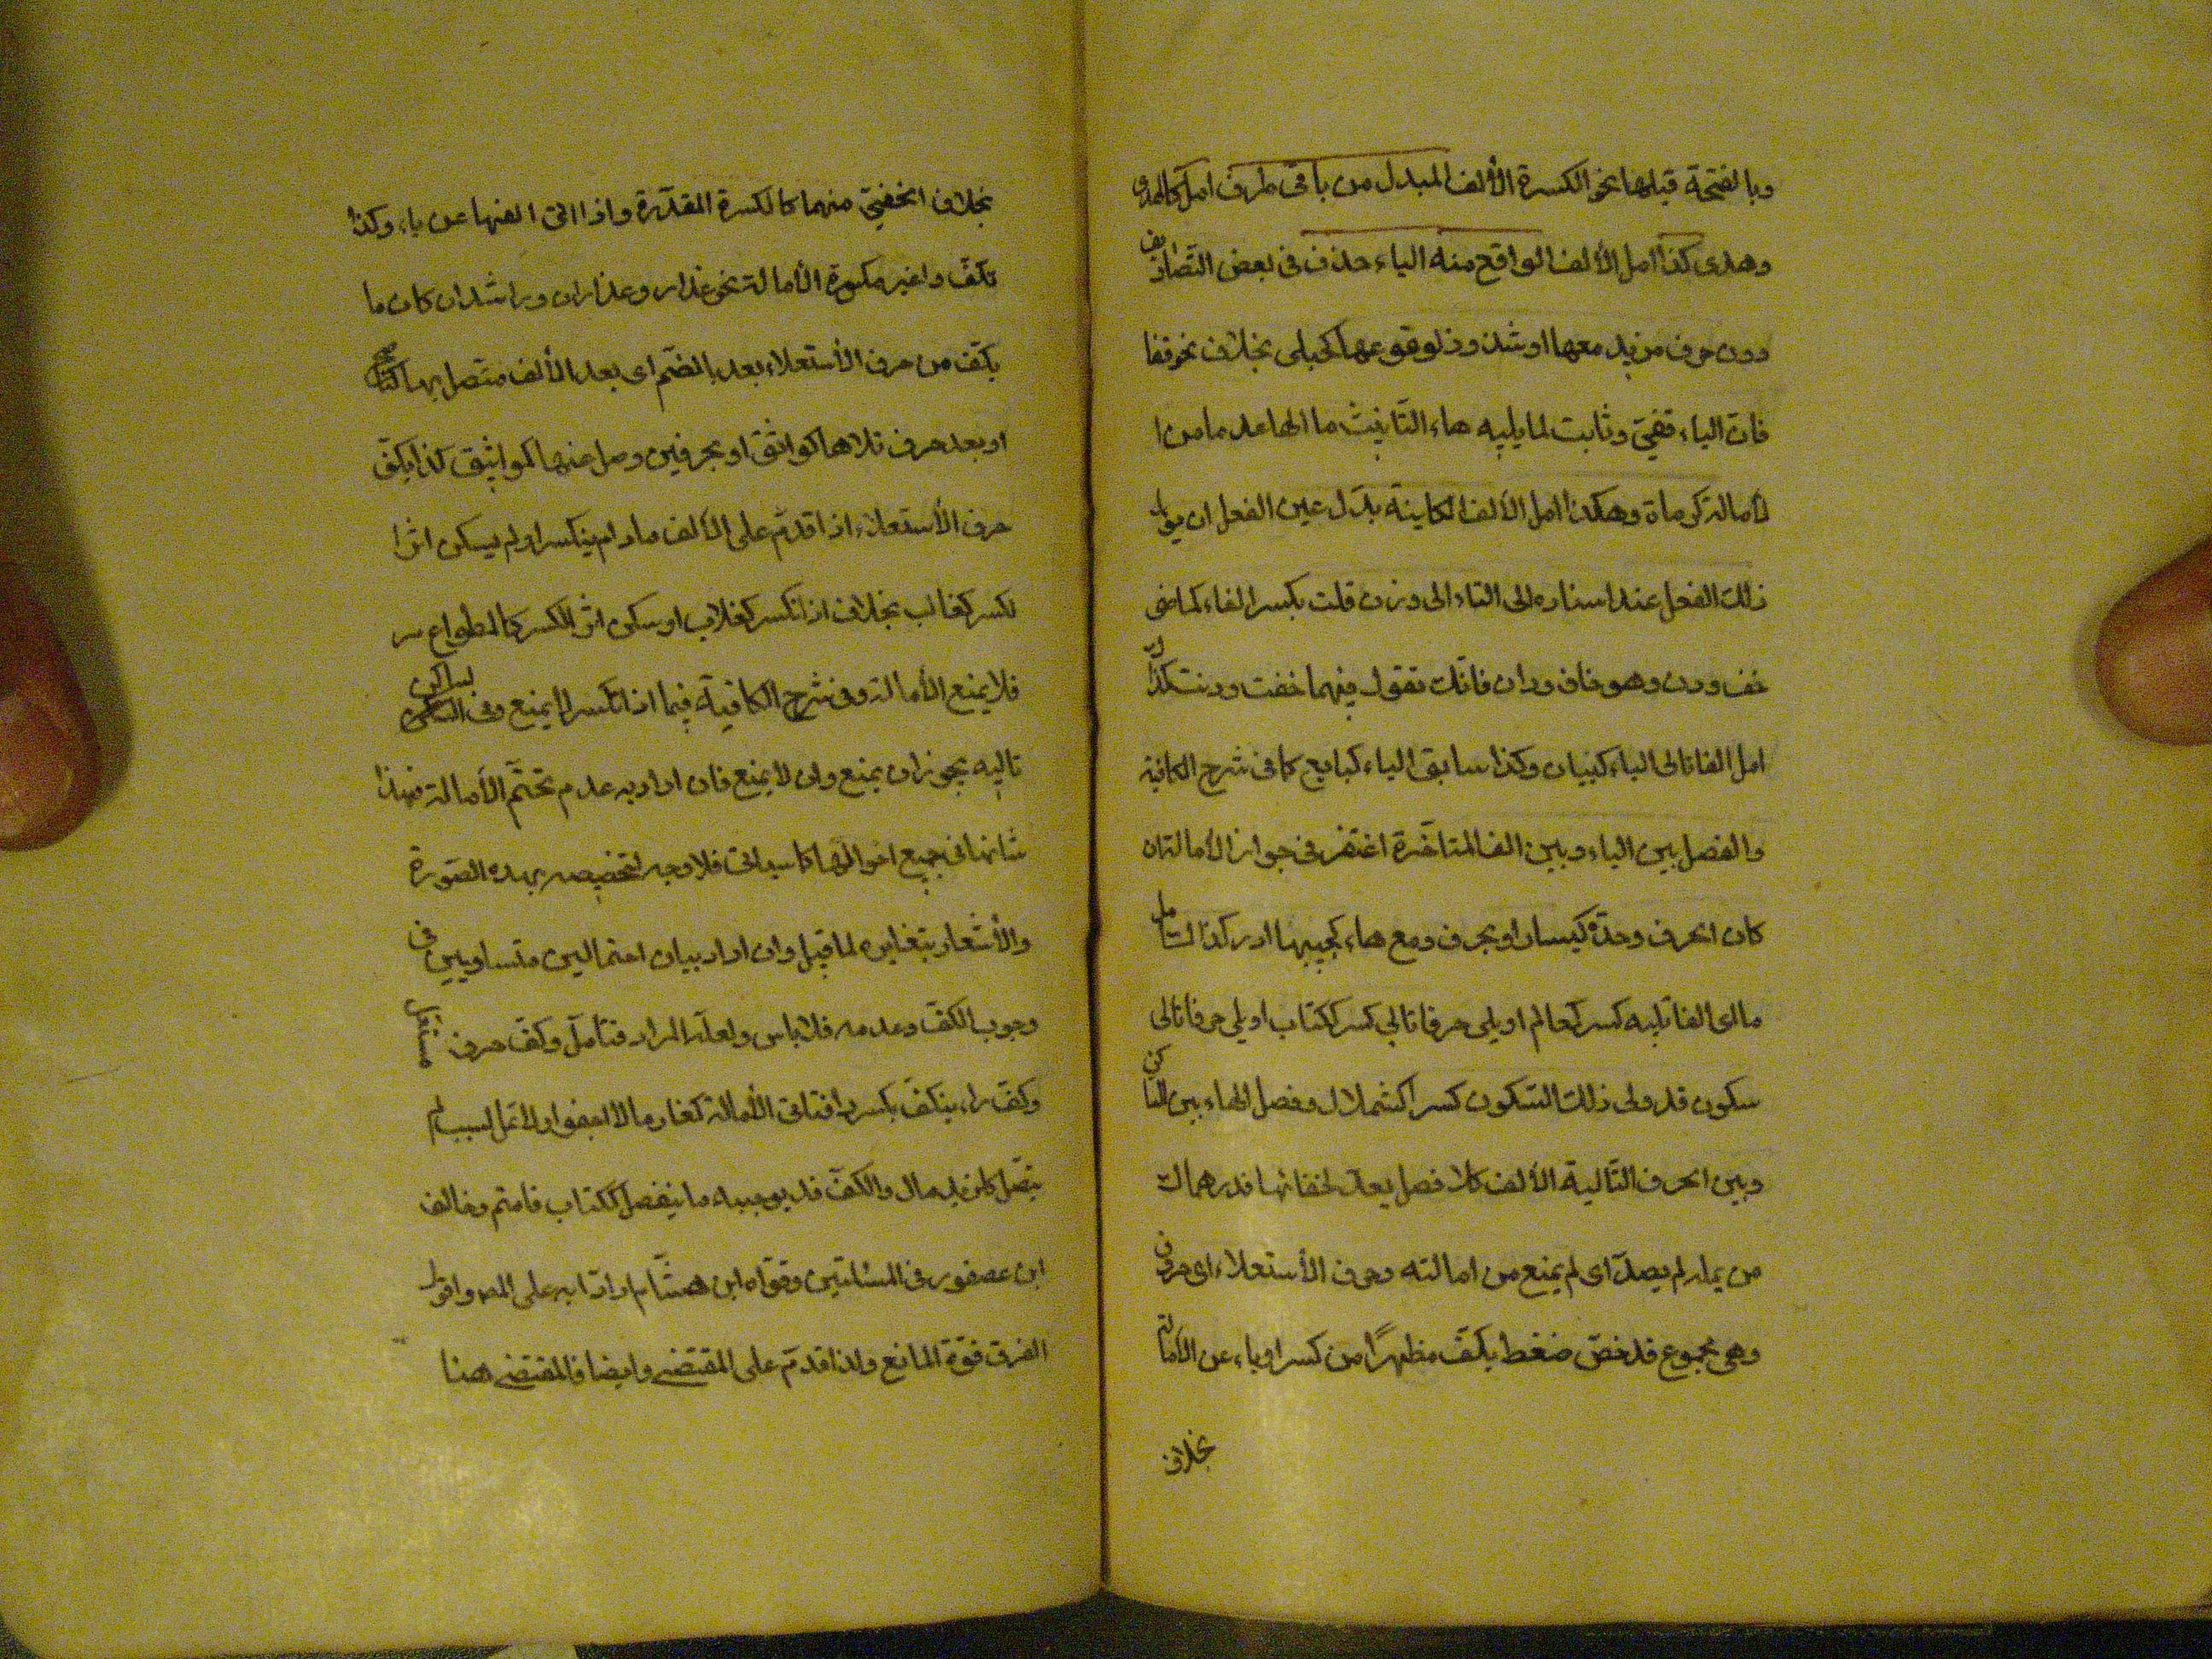 وبالفتحة قبلها نحو الكسرة الألف المبدل من يا في طرف امل كالهدى
وهدى كذا امل الألف الواقع منه الياء خلف في بعض التصاريف
دون حرف مزيد معها او شذوذ لوقوعها كحبلى بخلاف نحو قفا
فان الياء قفيّ وثابت لما يليه هاء التّأنيث ما الها عدما من ا
لأمالة كرماة وهكذا امل الألف الكاينة بدل عين الفعل ان يؤل
ذلك الفعل عند اسناده الى التاء الى وزن فلت بكسر الفاء كماضى
خف ودن وهو خاف ودان فانّك تقول فيهما خفت ودنت كذا
امل الفا تالى الياء كبيان وكذا سابق الياء كبايع كما في شرح الكافية
والفصل بين الياء وبين الف المتأخّرة اغتفر في جواز الأمالة ان
كان الحرف وحده كيسار او بحرف ومع هاء كجيبها ادر كذا امل
مااى الفا يليه كسر كعالم او يلي حرفا تالي كسر ككتاب او يلي حرفا تالى
سكون قد ولى ذلك السّكون كسرا كشملال وفصل الهاء بين الساكن
وبين الحرف التّالية الألف كلا فصل يعدّ لخفائها فدرهماك
من يمله لم يصدّ اى لم يمنع من امالته وحرف الأستعلاء اى حروف
وهى مجموع قد خصّ ضغط يكفّ مظهرًا من كسر او ياء عن الأمالة
بخلاف
بخلاف الخفيّ منهما كالكسرة المقدّرة واذا اتى الفها عن ياء وكذا
تكفّ را غير مكسورة الأمالة نحو عذار وعذاران وراشد ان كان ما
يكفّ من حرف الأستعلاء بعد بالضّم اى بعد الألف متّصل بها
او بعد حرف تلاها كواثق او بحرفين فصل عنها كمواثيق كذا يكفّ
حرف الأستعلاء اذا قدّم على الألف مادام ينكسر او لم يسكن اثر ا
لكسر كغالب بخلاف اذا انكسر كغلاب او سكن اثر الكسر كالمطواع مر
فلا يمنع الأمالة وفى شرح الكافية فيما اذا انكسر لا يمنع وفى الساكن
تاليه يجوز ان يمنع وان لا يمنع فان اراد به عدم تحتّم الأمالة فهذا
شانها في جميع احوالها كما سياتى فلا وجه لتخصيصه بهذه الصّورة
والأشعار بتغايره لما قبل وان اراد بيان احتمالين متساويين في
وجوب الكفّ وعدمه فلا باس ولعله المراد فتأمّل وكفّ حرف مستعل
وكفّ راء ينكفّ بكسر را فتاتى الأمالة كغارما لا اجفوا ولا تمل لسبب لم
يتّصل كلزيد مال والكفّ قد يوجبه ما ينفصل ككتاب قاسم وخالف
ابن عصفور في المسئلتين وقوّاه ابن هشّام رادّا به على المص واقول
الفرق قوّة المانع ولذا قدّم على المقتضى وايضا فالمقتضى هنا